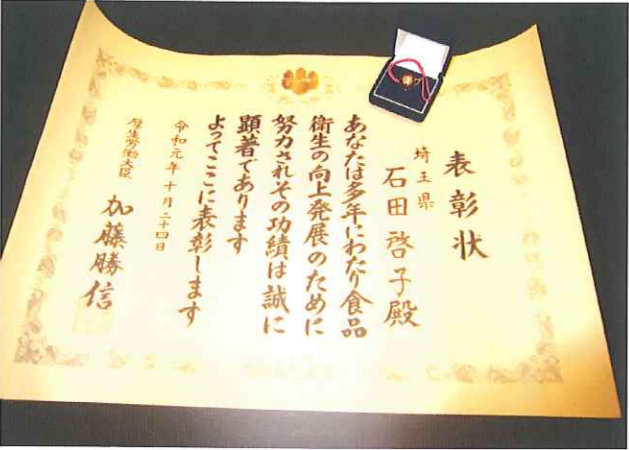 表彰状
埼玉県
石田啓子殿
あなたは多年にわたり食品
衛生の向上発展のために
努力されその功績は誠に
顕著であります
よってここに表彰します
令和元年十月二十四日
厚生労働大臣
加藤勝信